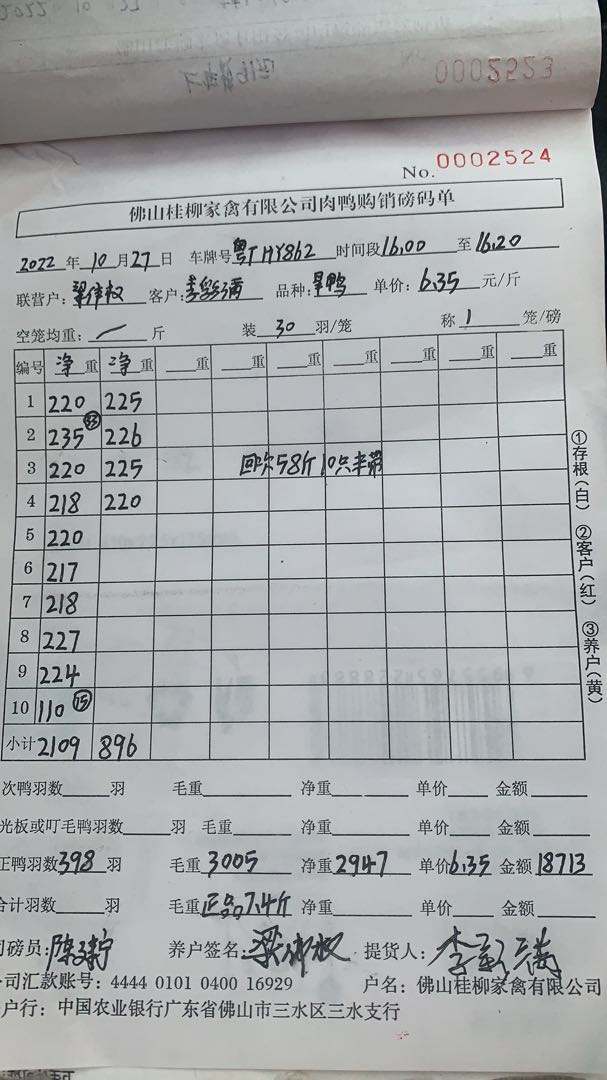 0002523
No. 0002524
佛山桂柳家禽有限公司肉鸭购销磅码单
2022 年 10 月 27 日 车牌号 粤T HY862 时间段 16.00 至 16.20
联营户: 梁伟权 客户: 李彩满 品种: 旱鸭 单价: 6.35 元/斤
空笼均重: 一 斤 装 30 羽/笼 称 1 笼/磅
编号 净重 净重 重 重 重 重 重 重
1 220 225
2 235 33 226
3 220 225 回尔58斤 10只半带
4 218 220
5 220
6 217
7 218
8 227
9 224
10 110 15
小计 2109 896
①存根(白) ②客户(红) ③养户(黄)
次鸭羽数 羽 毛重 净重 单价 金额
光板或叮毛鸭羽数 羽 毛重 净重 单价 金额
正鸭羽数 398 羽 毛重 3005 净重 2947 单价 6.35 金额 18713
合计羽数 羽 毛重 正品7.4斤 净重 单价 金额
司磅员: 陈 养户签名: 梁伟权 提货人: 李彩满
公司汇款账号: 4444 0101 0400 16929 户名: 佛山桂柳家禽有限公司
户行: 中国农业银行广东省佛山市三水区三水支行